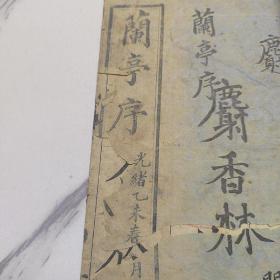 蘭亭序
光緒乙未春月
蘭亭序
麝香林
麝